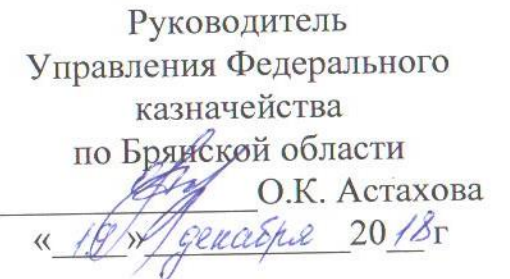 Руководитель
Управления Федерального
казначейства
по Брянской области
О.К. Астахова
«19» декабря 2018г